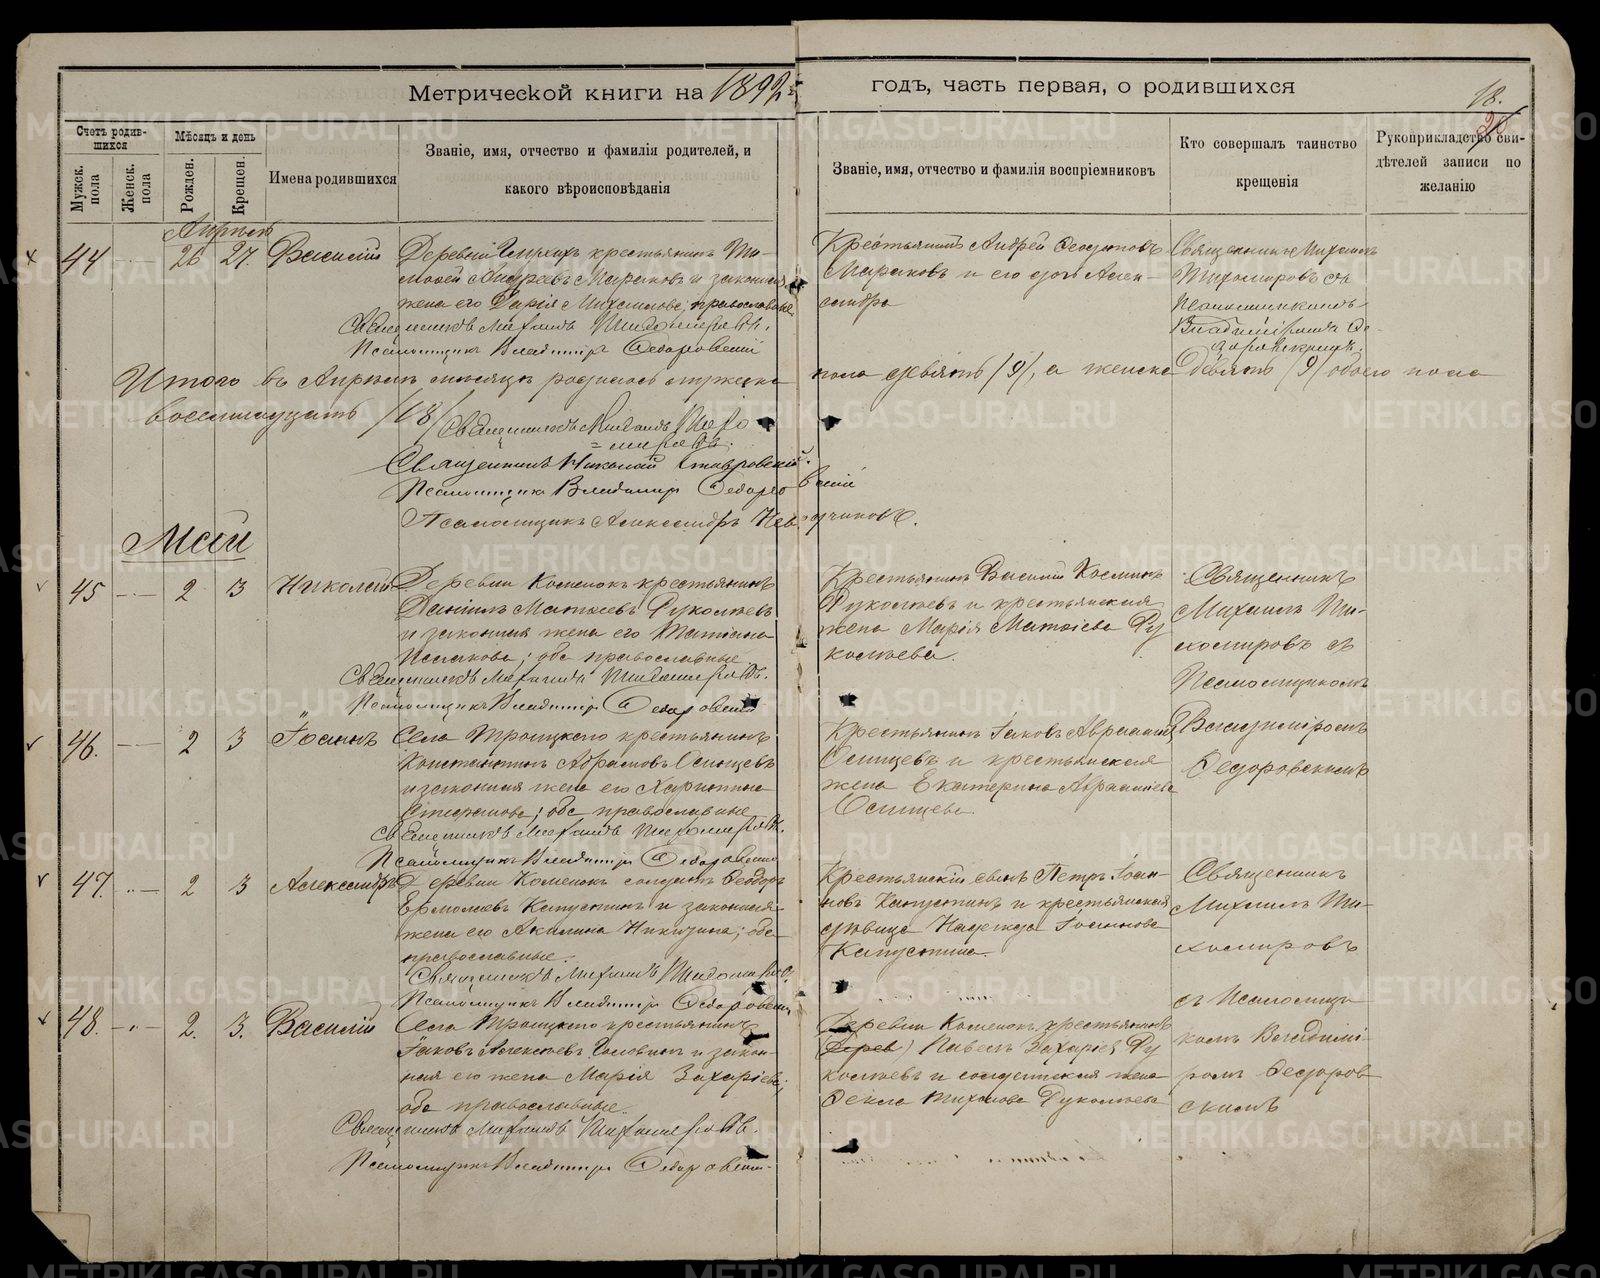 Метрической книги на 1892й годъ, часть первая, о родившихся
18.
20
Счетъ родив-
шихся
Мѣсяцъ и день
Мужск. пола
Женск. пола
Рожден.
Крещен.
Имена родившихся
Званіе, имя, отчество и фамилія родителей, и
какого вѣроисповѣданія
Званіе, имя, отчество и фамилія воспріемниковъ
Кто совершалъ таинство
крещенія
Рукоприкладство сви-
дѣтелей записи по
желанію
Апрѣль
44 26 27. Василій
Деревни крестьянинъ Ти-
моѳей Андреевъ Мараковъ и законная
жена его Дарія Михаилова, православные
Священникъ Михаилъ Тихомировъ.
Псаломщикъ Владимиръ Ѳедоровскій
Крестьянинъ Андрей Ѳеодоровъ
Мараковъ и его дочь Алек-
сандра
Священникъ Михаилъ
Тихомировъ съ
Псаломщикомъ
Владиміромъ Ѳе-
доровскимъ.
Итого въ Апрѣлѣ мѣсяцѣ родилось мужеска пола девять /9/, а женска девять /9/ обоего пола
восемнадцать /18/
Священникъ Михаилъ Тихо
=мировъ.
Священникъ Николай Ставровскій.
Псаломщикъ Владимиръ Ѳедоровскій
Псаломщикъ Александръ
Май
45 2 3 Николай
Деревни Коменокъ крестьянинъ
Даніилъ Матѳіевъ Дуколѣевъ
и законная жена его Татіана
Исаакова; оба православные
Священникъ Михаилъ Тихомировъ.
Псаломщикъ Владимиръ Ѳедоровскій
Крестьянинъ Василій Косминъ
Дуколѣевъ и крестьянская
жена Марія Матѳіева Ду
колѣева.
Священникъ
Михаилъ Ти-
хомировъ съ
Псаломщикомъ
Владиміромъ
Ѳедоровскимъ
46. 2 3 Іоаннъ
Села Троицкаго крестьянинъ
Константинъ Абрамовъ Осинцевъ
и законная жена его Харитина
Стефанова; оба православные
Священникъ Михаилъ Тихомировъ.
Псаломщикъ Владимиръ Ѳедоровскій
Крестьянинъ Іаковъ Авраамія
Осинцевъ и крестьянская
жена Екатерина Авраамiева
Осинцева.
47. 2 3 Александръ
Деревни Коменокъ солдатъ Ѳеодоръ
Ермолаевъ Капустинъ и законная
жена его Акилина Никитина; оба
православные.
Священникъ Михаилъ Тихомировъ.
Псаломщикъ Владимиръ Ѳедоровскій
Крестьянскій сынъ Петръ Іоан-
новъ Капустинъ и крестьянская
дѣвица Надежда Іоаннова
Капустина.
Священникъ
Михаилъ Ти-
хомировъ
съ Псаломщи
комъ Владимі
ромъ Ѳедоров
скимъ
48. 2. 3. Василій
Села Троицкаго крестьянинъ
Іаковъ Алексѣевъ Головинъ и закон-
ная его жена Марія Захаріева;
оба православные.
Священникъ Михаилъ Тихомировъ.
Псаломщикъ Владимиръ Ѳедоровскій.
Деревни Коменокъ крестьянинъ
Павелъ Захаріевъ Ду
колѣевъ и солдатская жена
Ѳекла Тихонова Дуколѣева
METRIKI.GASO-URAL.RU